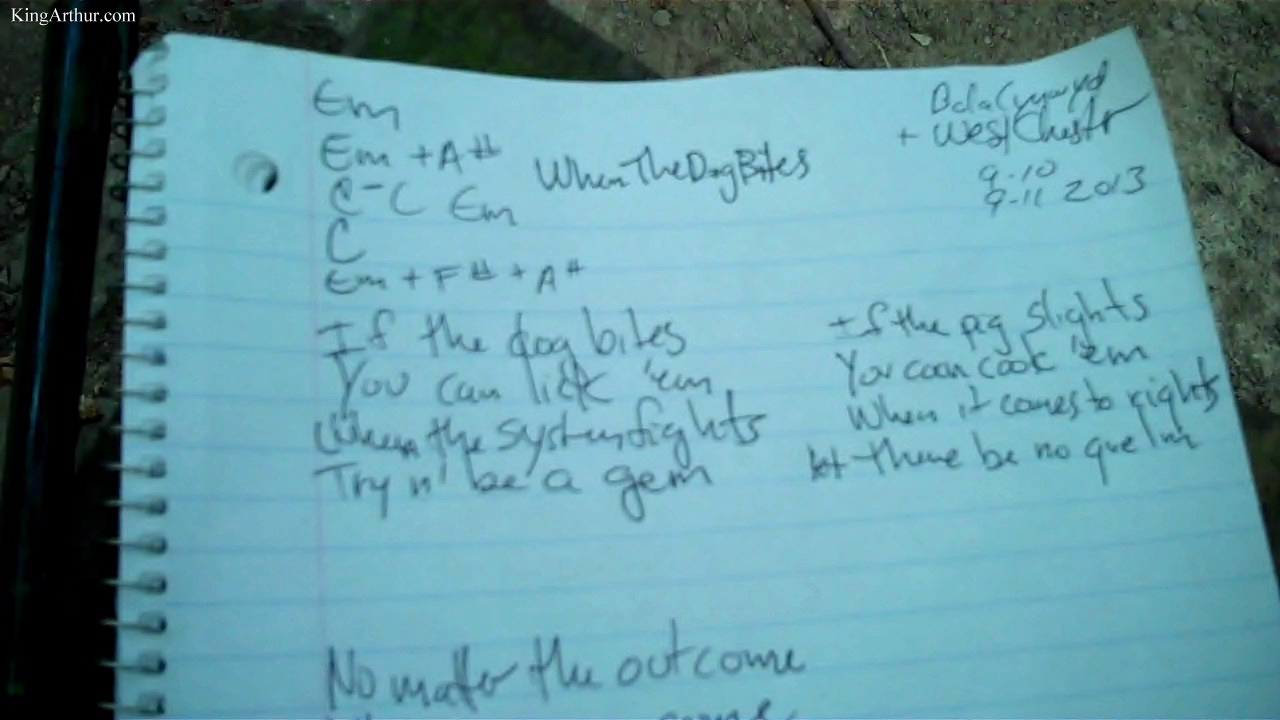 KingArthur.com
Em
Em + A#
C-C Em
C
Em + F# + A#
When The Dog Bites
BalaCynwyd
+ WestChestr
9-10
9-11 2013
If the dog bites
You can lick 'em
When the system fights
Try n' be a gem
If the pig slights
You can cook 'em
When it comes to rights
let there be no quelm
No matter the outcome